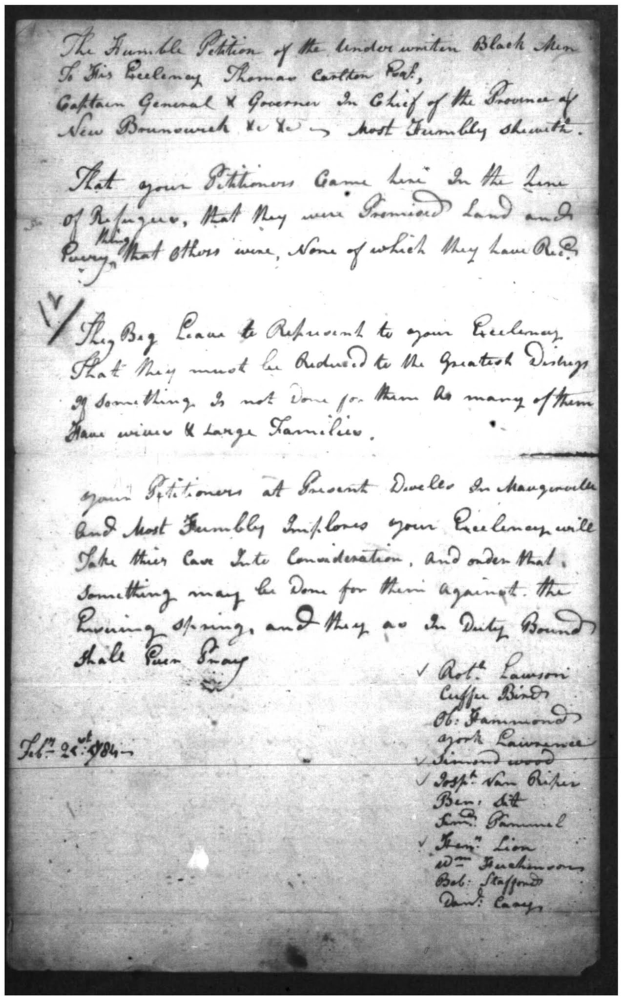 The Humble Petition of the underwritten Black Men
To His Excelency Thomas Carlton Esqr,
Captain General & Governer In Chief of the Province of
New Brunswick &c &c Most Humbly sheweth.
That your Petitioners Came here In the Line
of Refugees, that they were Promised Land and
thing
Every that others were, None of which they have Recd
12/
They Beg Leave to Represent to your Excelency
That they must be Reduced to the Greatest Distress
if something Is not Done for them As many of them
Have wives & Large Families.
your Petitioners at Present Dwells In Maugerville
And Most Humbly Implores your Excelency will
Take thier Case Into Consideration, And order that
something may be Done for them Against the
Ensuing spring, and they as In Duty Bound
shall Ever Pray
✓ Robt Lawson
Cuffee Bird
Ob: Hammond
york Lawrence
Feby 21st 1784
✓ Simond wood
✓ Josph Van Riper
Ben:
Saml Pammel
✓ Heny Lion
Wm Huchinson
Bob: Stafford
Danl: Casey